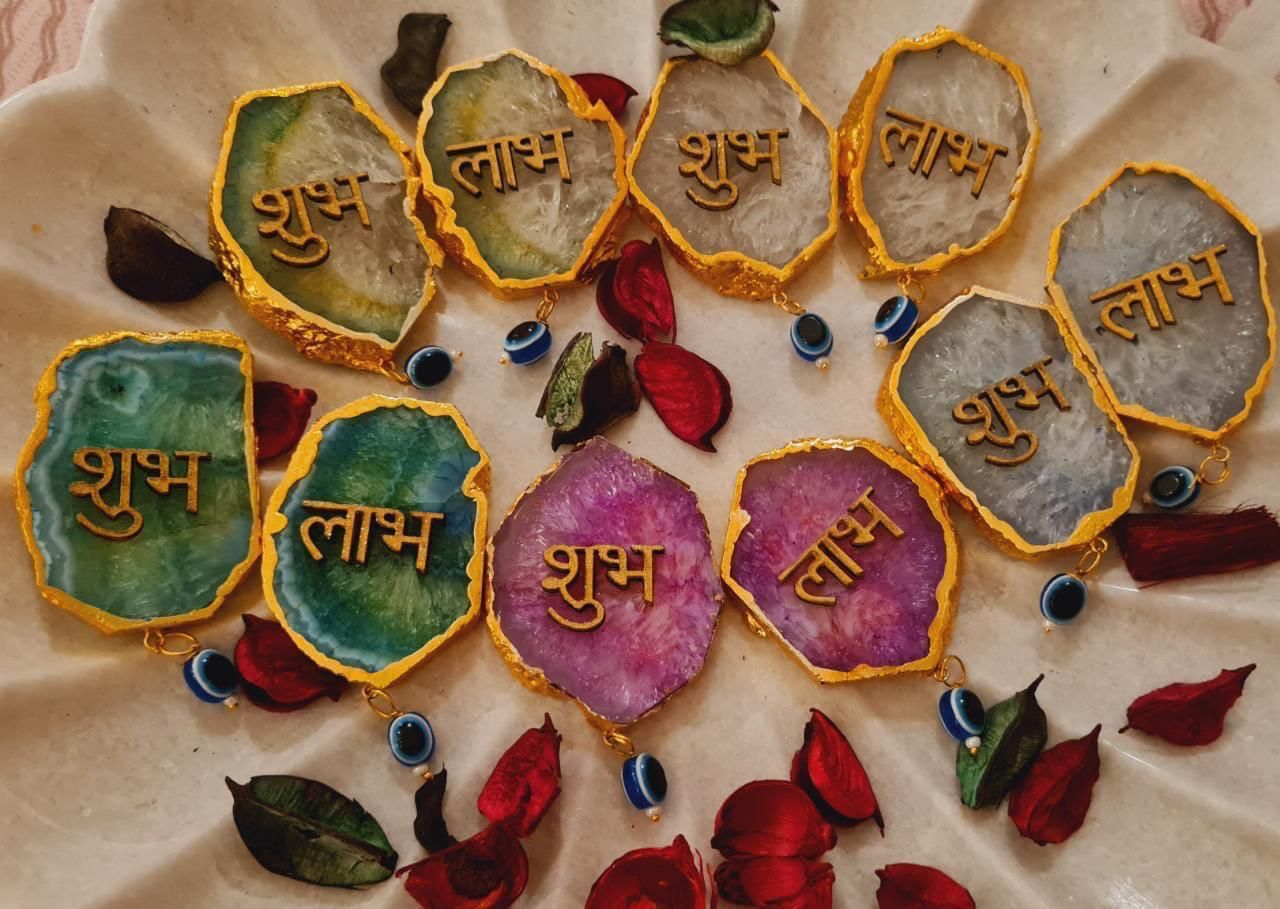 शुभ
लाभ
शुभ
लाभ
लाभ
शुभ
शुभ
लाभ
शुभ
लाभ